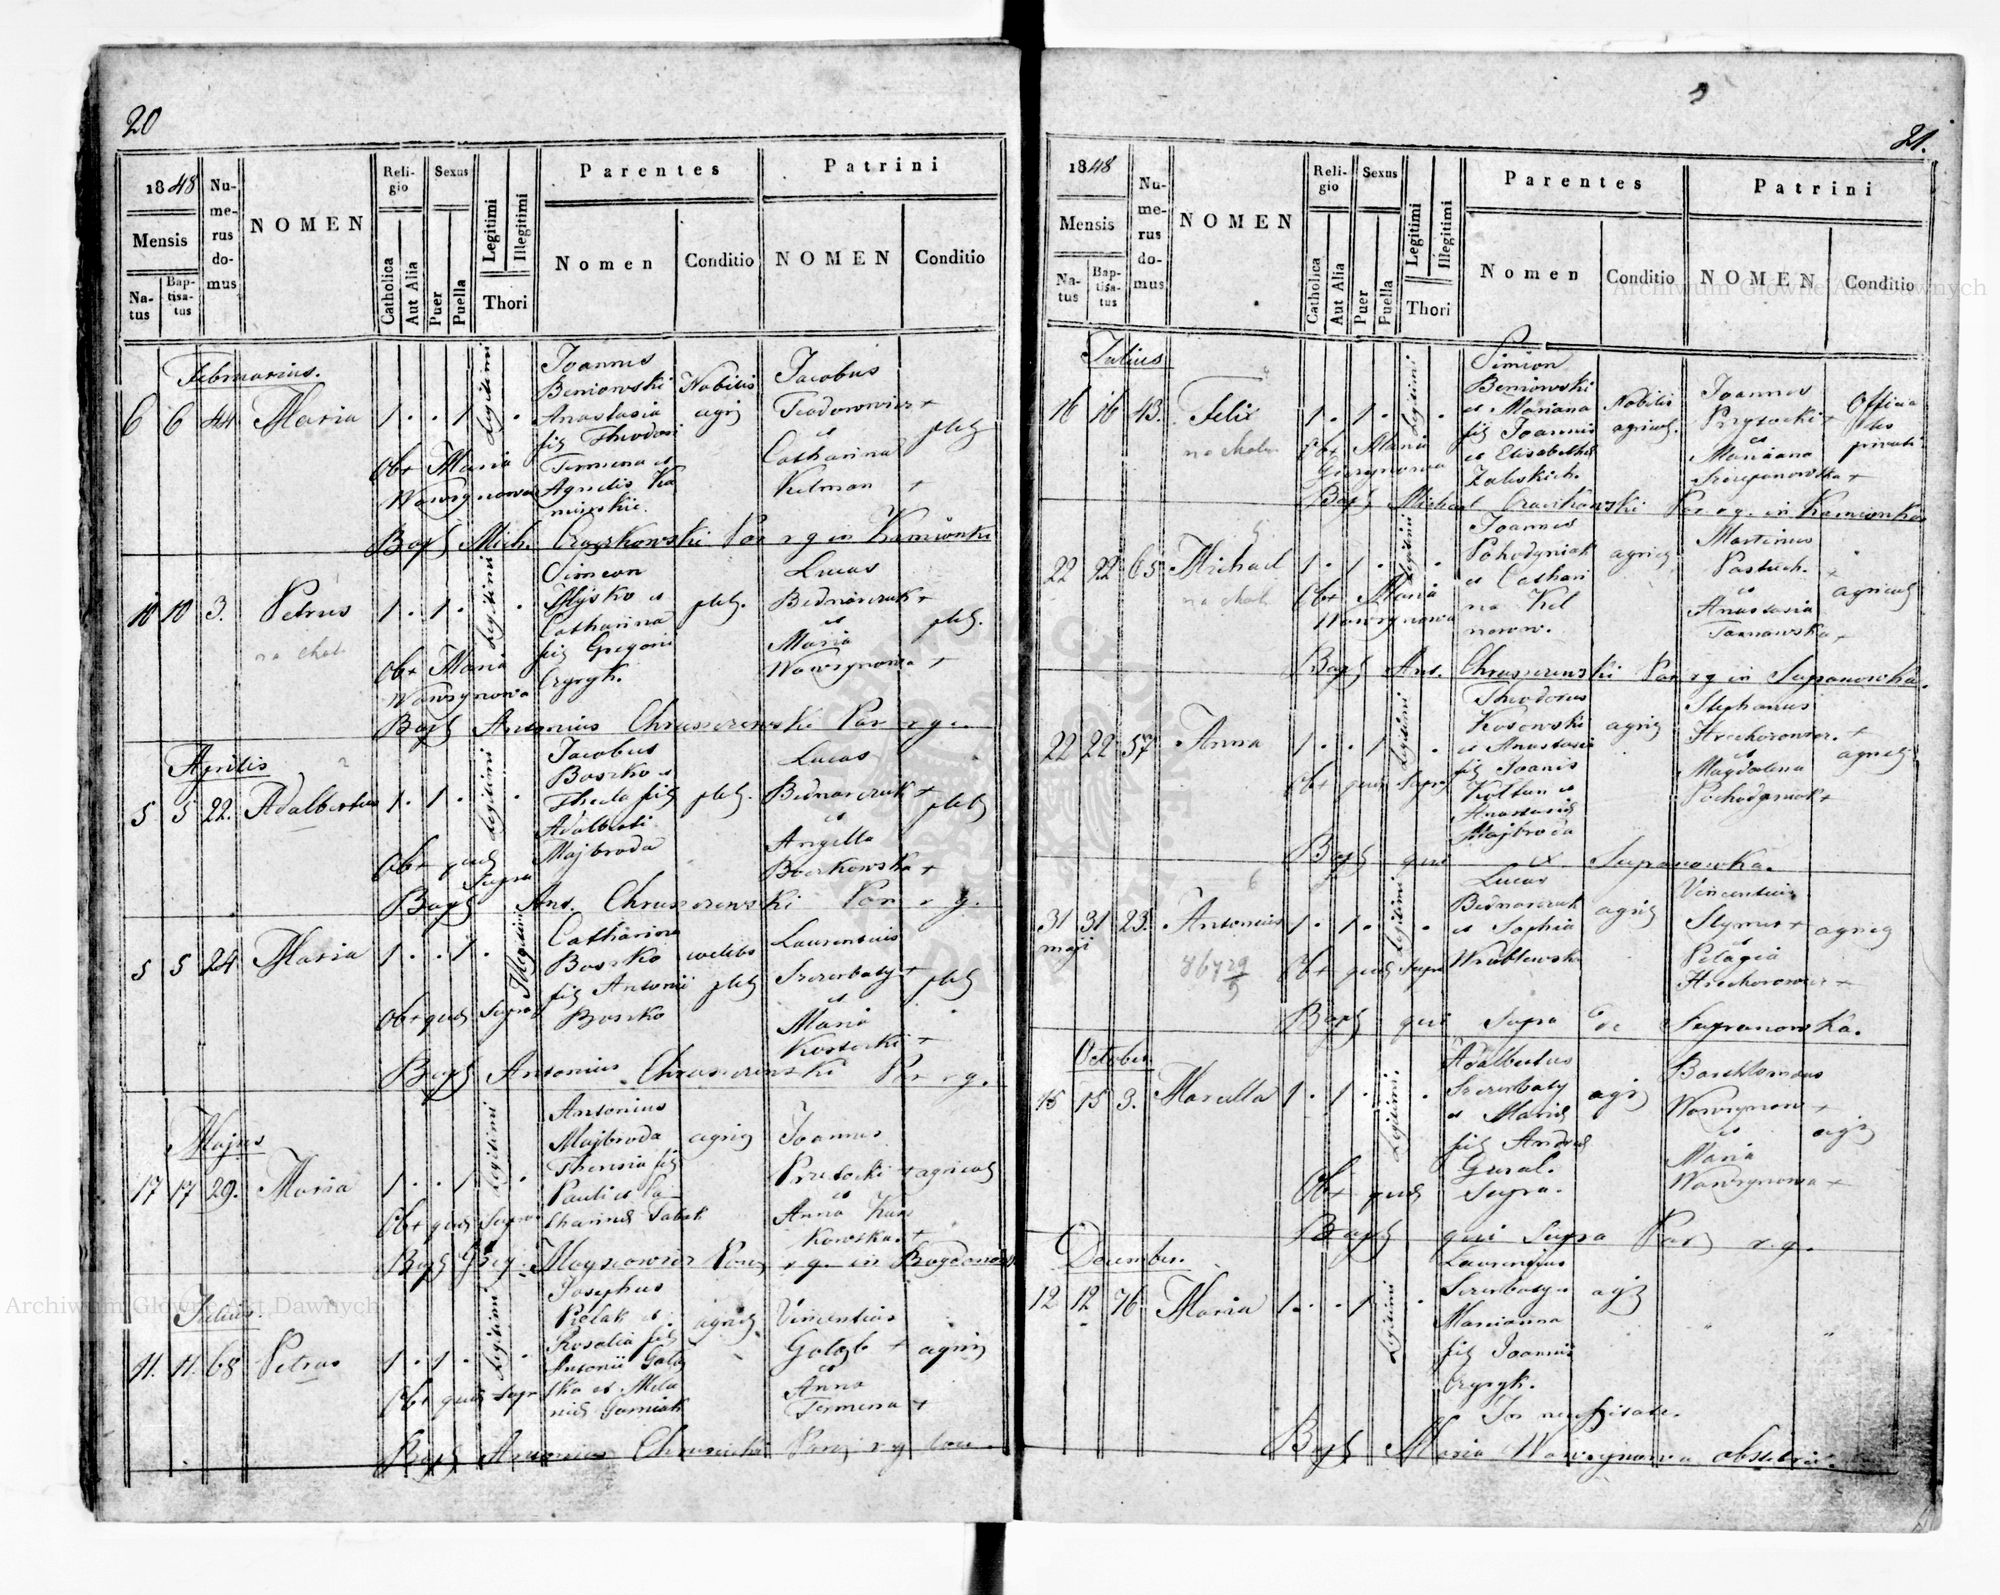 20
1848
Mensis
Natus
Baptisatus
Numerus domus
NOMEN
Religio
Catholica
Aut Alia
Sexus
Puer
Puella
Legitimi
Illegitimi
Thori
Parentes
Nomen
Conditio
Patrini
NOMEN
Conditio
Februarius.
6 6 44 Maria 1 . . 1 Legitimi .
Joannes
Beniowski Nobilis
Anastasia agri
fil Theodori
Termena et
Agnetis Ka
minskie.
Jacobus
Teodorowicz +
et
Catharina
Kelman +
pleb
Obst Maria
Wawrynowa
Bapt Mich. Czaykowski Par r g in Kamionki
10 10 3. Petrus 1 . 1 . Legitimi .
na chol.
Simeon
Hysko et pleb.
Catharina
fil Gregorii
Czyryk.
Lucas
Bednarczuk +
et
Maria
Wawrynowa +
pleb.
Obst Maria
Wawrynowa
Bapt Antonius Chruszczewski Par r g.
Aprilis
5 5 22. Adalbertus 1 . 1 . Legitimi .
Jacobus
Boszko et
Thecla fil pleb.
Adalberti
Majbroda
Lucas
Bednarczuk +
et
Angella
Borkowska +
pleb
Obst quae
supra
Bapt Ant. Chruszczewski Par r g.
5 5 24 Maria 1 . . 1 . Illegitimi
Catharina
Boszko
fil Antonii pleb
Boszko
Laurentius
Szczerbaty +
et
Maria
Kostecki +
pleb
Obst quae supra
Bapt Antonius Chruszczewski Par r g.
Majus
17 17 29. Maria 1 . . 1 Legitimi .
Antonius
Majbroda agric
Theresia fil
Pauli et Ca
tharinae Tabak
Joannes
Przesocki + agricol
et
Anna Kas
kowska. +
Obst quae supra
Bapt Greg. Moysiowicz Par r g in Bogdanow
Julius.
11. 11. 68 Petrus 1 . 1 . Legitimi .
Josephus
Pielak et agric
Rosalia fil
Antonii Gala
tka et Mela
niae Garniak
Vincentius
Golab + agric
et
Anna
Termena +
Obst quae supr
Bapt Antonius Chruszczewski Par r g loci
21.
1848
Mensis
Natus
Baptisatus
Numerus domus
NOMEN
Religio
Catholica
Aut Alia
Sexus
Puer
Puella
Legitimi
Illegitimi
Thori
Parentes
Nomen
Conditio
Patrini
NOMEN
Conditio
Julius
16 16 43. Felix 1 . 1 . Legitimi .
na chol.
Simion
Beniowski
et Mariana Nobilis
fil Joannis agricol.
et Elisabethae
Zaleskich.
Joannes
Przysocki +
et
Mariana
Szczepanowska +
Officia
les
privati
Obst Maria
Bapt Michael Czaykowski Par r g. in Kamionka
22 22 65 Michael 1 . 1 . Legitimi .
na chol.
Joannes
Pohodyniak agric
et Cathari
na Kel
norow.
Martinus
Pastuch. +
et
Anastasia
Tarnawska +
agricol
Obst Maria
Wawrynowa
Bapt Ant. Chruszczewski Par r g in Supranowka.
22 22 57 Anna 1 . . 1 Legitimi .
Theodorus
Kosowski agric
et Anastasia
fil Joanis
Koltun et
Anastasiae
Majbroda
Stephanus
Hrehorowicz. +
et
Magdalena
Pochodyniak +
agric
Obst quae supra
Bapt qui ex Supranowka.
31 31 23. Antonius 1 . 1 . Legitimi .
maji
867 29/5
Lucas
Bednarczuk agric
et Sophia
Wroblewska
Vincentius
Slymus + agric
et
Pelagia
Hrehorowicz +
Obst quae supra
Bapt qui supra de Supranowka.
October
15 15 3. Marcella 1 . 1 . Legitimi .
Adalbertus
Szczerbaty agri
et Maria
fil Andreae
Gural.
Bartholomaeus
Wawrynow +
et
Maria
Wawrynowa +
agri
Obst quae supra.
Bapt qui supra Par r. g.
December.
12 12 76 Maria 1 . . 1 Legitimi .
Laurentius
Szczerbaty agr
Marianna
fil Joannis
Czyryk.
In necessitate.
Bapt Maria Wawrynowa obstetrix.
Archiwum Główne Akt Dawnych
Archiwum Główne Akt Dawnych